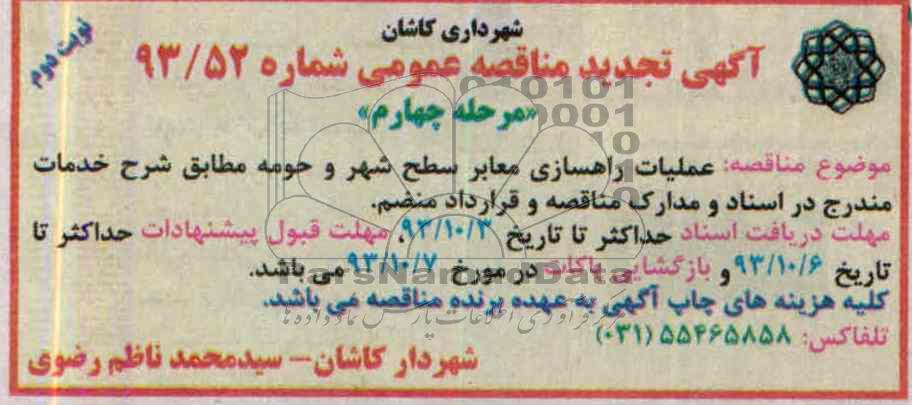 شهرداری کاشان
نوبت دوم
آگهی تجدید مناقصه عمومی شماره ۹۳/۵۲
«مرحله چهارم»
موضوع مناقصه: عملیات راهسازی معابر سطح شهر و حومه مطابق شرح خدمات
مندرج در اسناد و مدارک مناقصه و قرارداد منضم.
مهلت دریافت اسناد حداکثر تا تاریخ ۹۳/۱۰/۳، مهلت قبول پیشنهادات حداکثر تا
تاریخ ۹۳/۱۰/۶ و بازگشایی پاکات در مورخ ۹۳/۱۰/۷ می باشد.
کلیه هزینه های چاپ آگهی به عهده برنده مناقصه می باشد.
تلفاکس: ۵۵۴۶۵۸۵۸ (۰۳۱)
شهردار کاشان– سیدمحمد ناظم رضوی
ParsNamadData